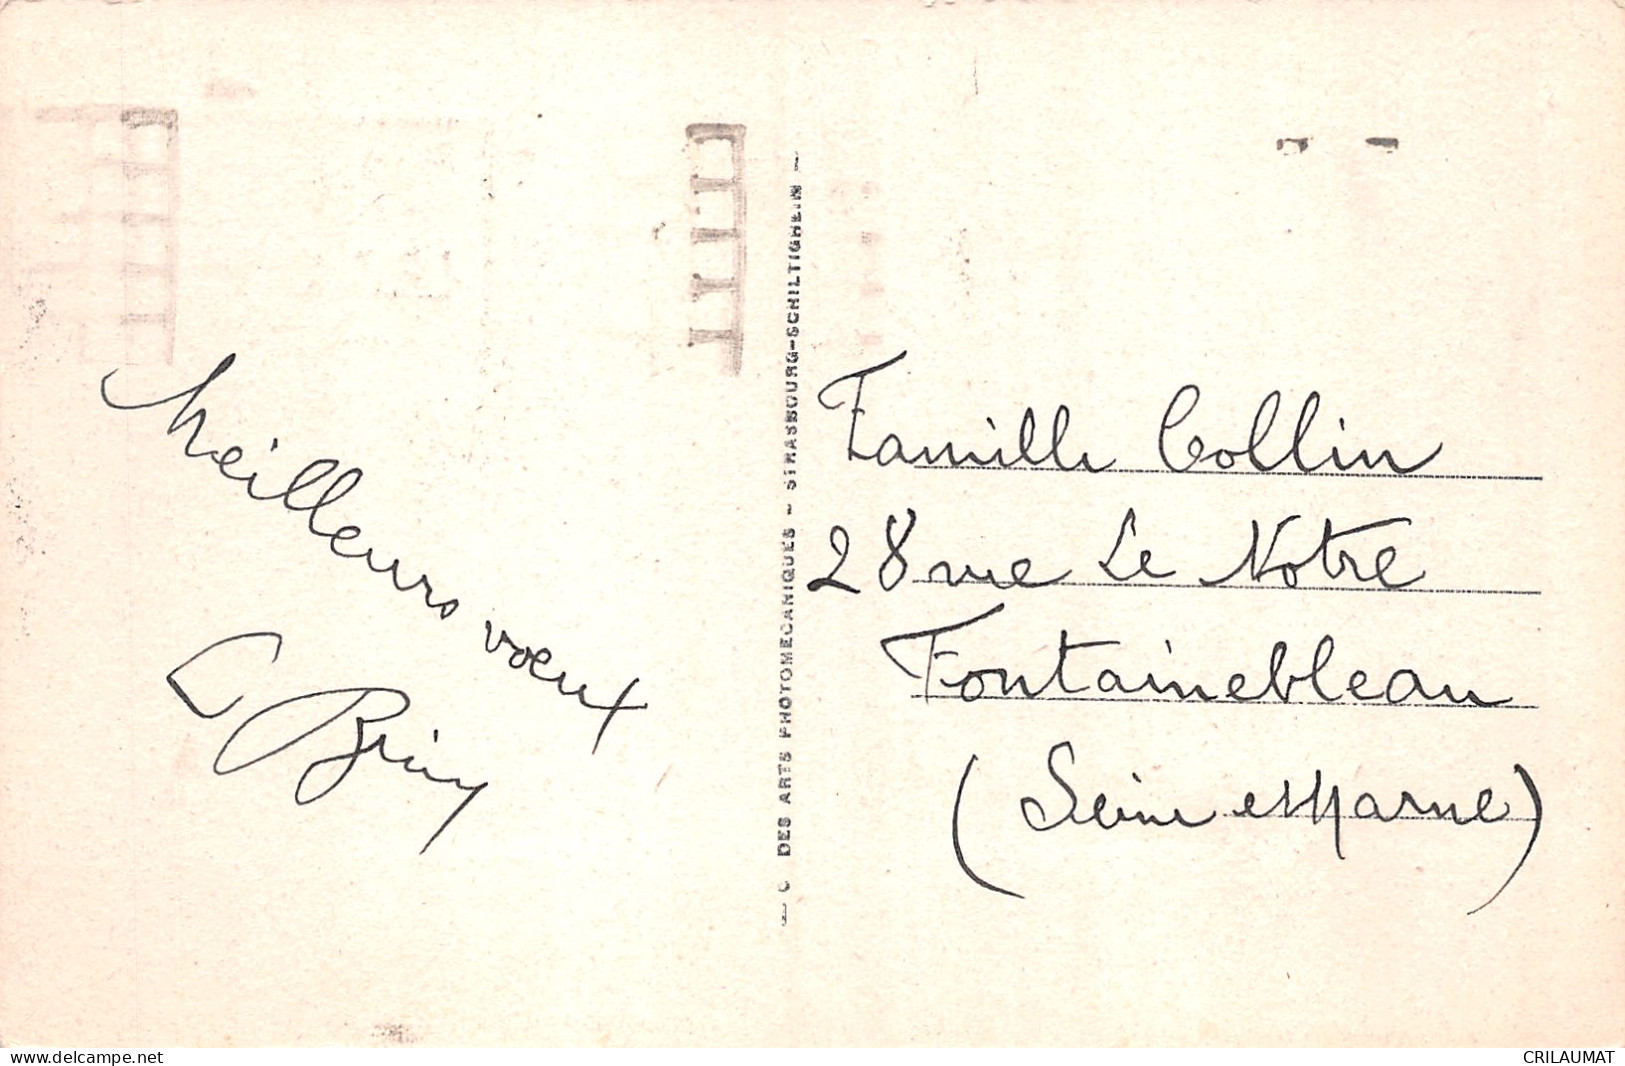 Meilleurs voeux
Famille Collin
28 rue Le Notre
Fontainebleau
(Seine et Marne)
C DES ARTS PHOTOMECANIQUES - STRASBOURG-SCHILTIGHEIM -
www.delcampe.net
CRILAUMAT